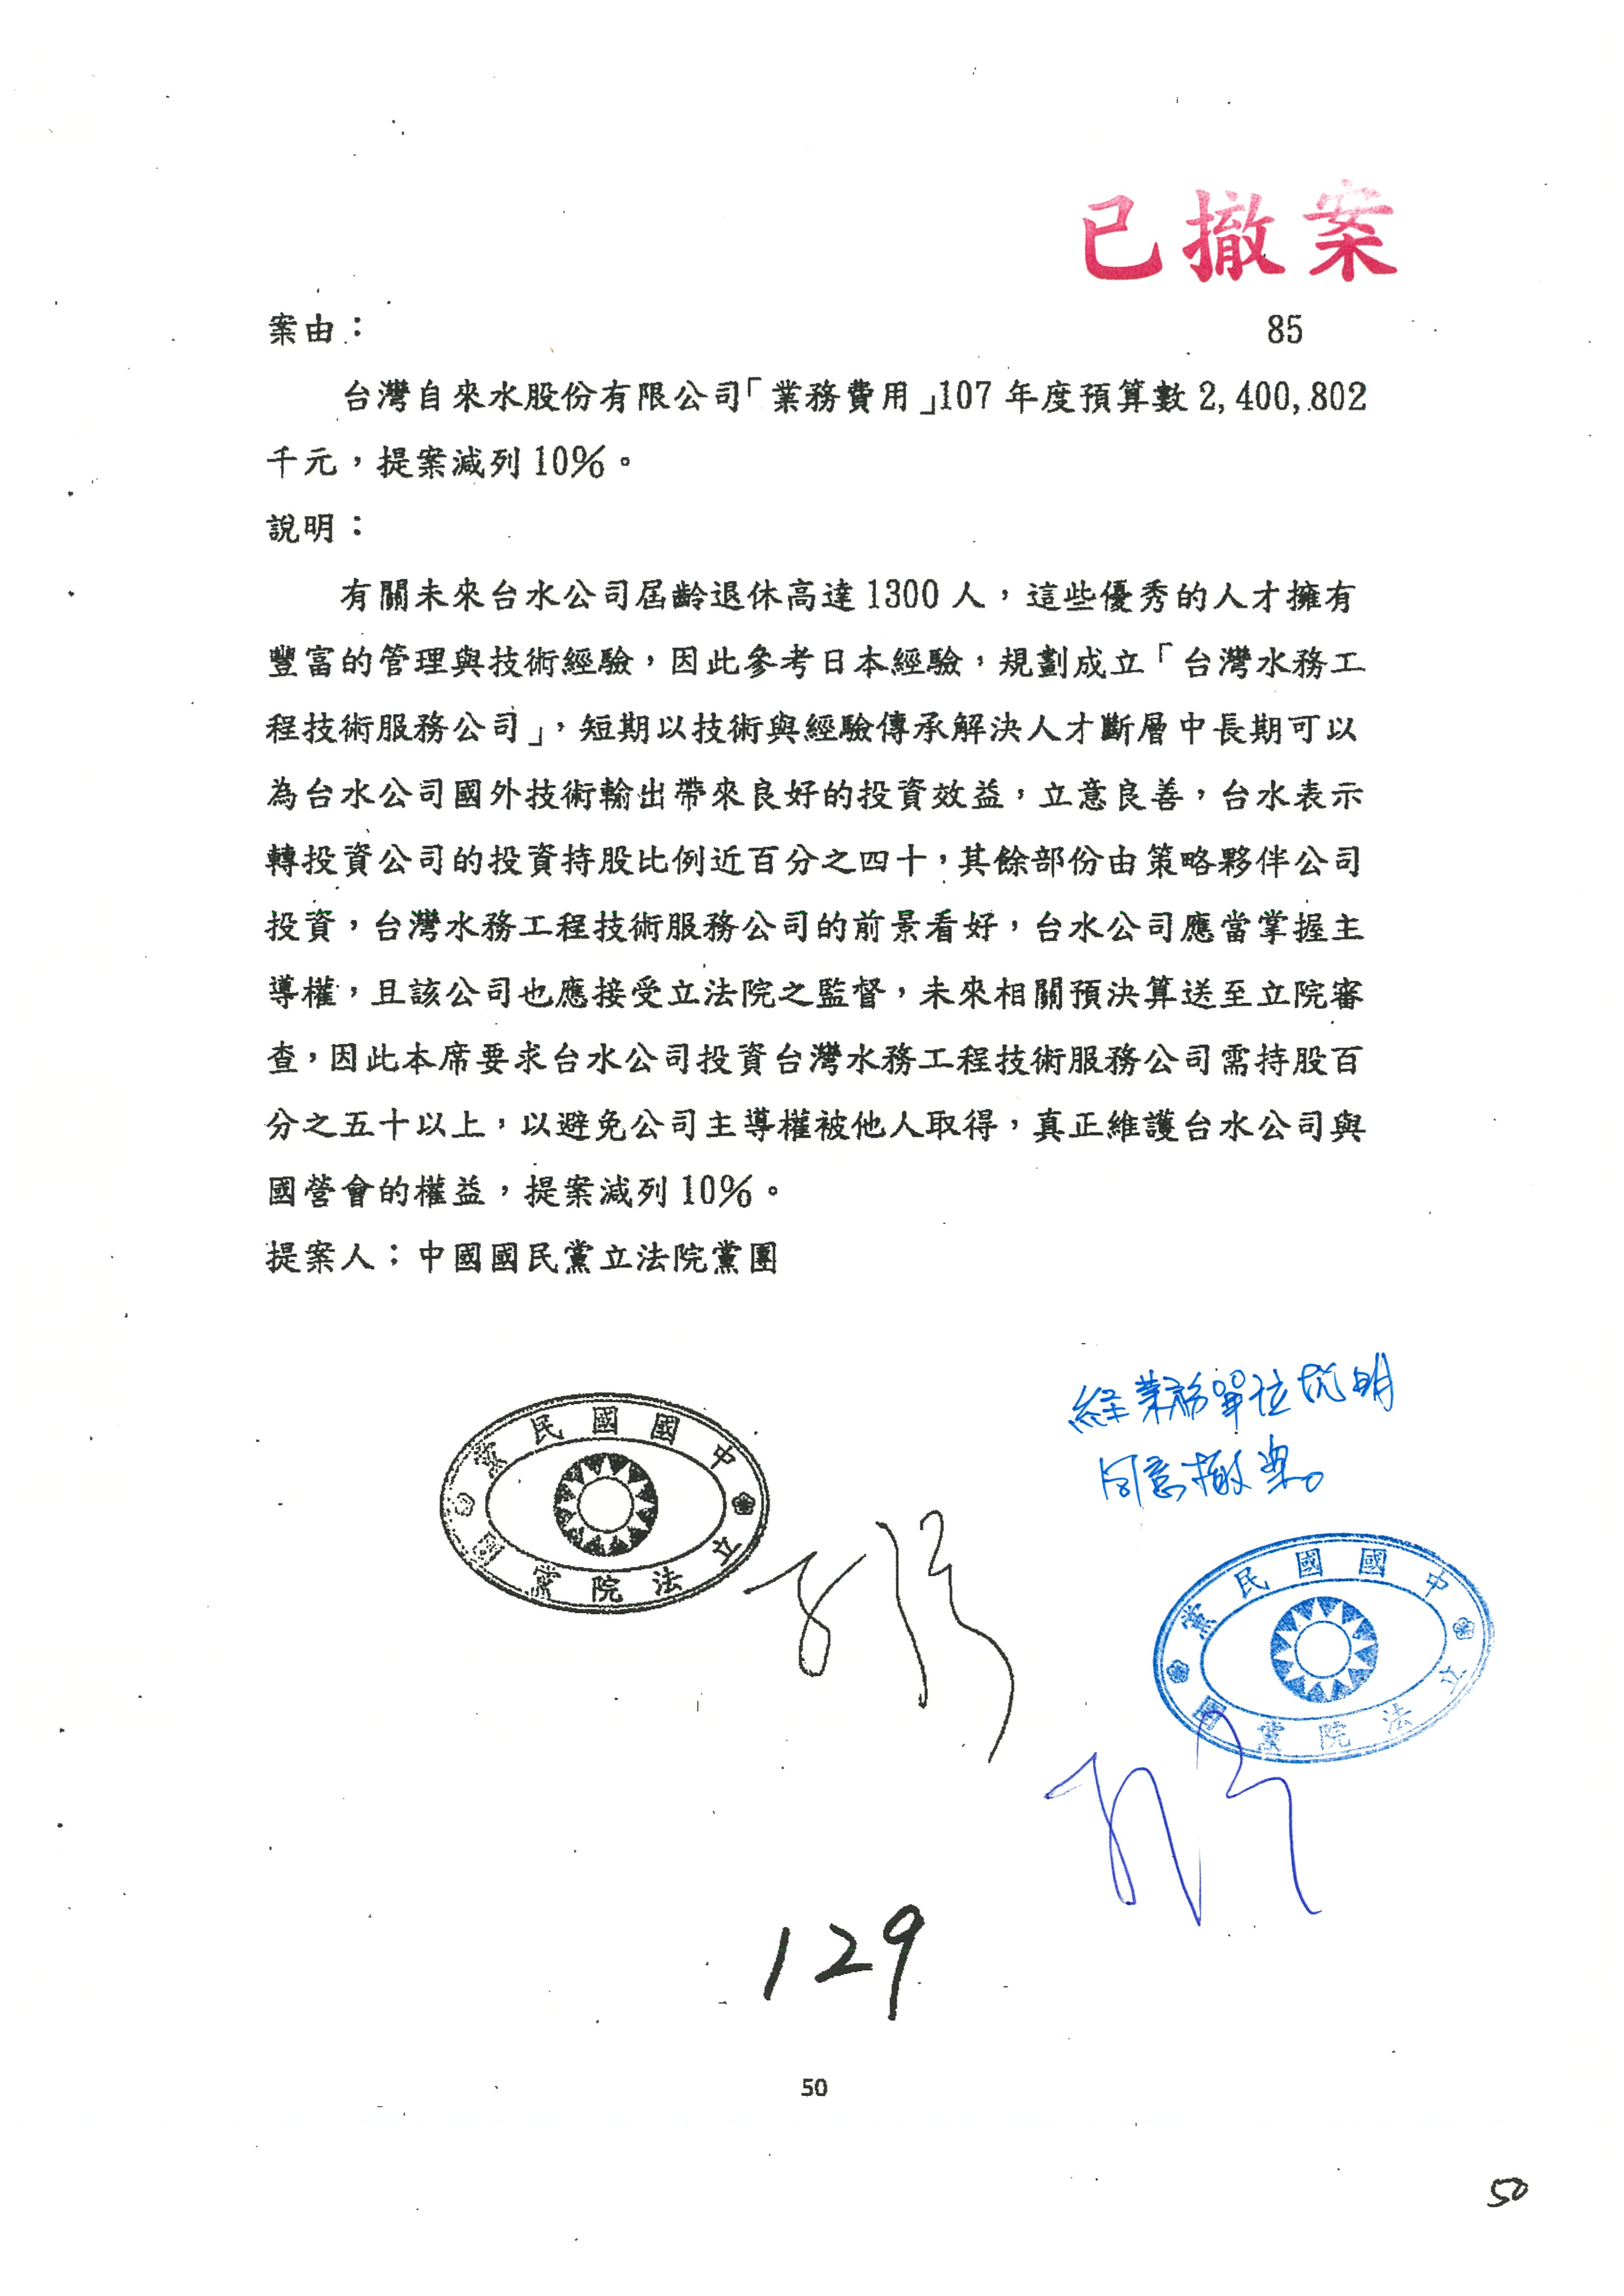 已撤案
案由：
85
台灣自來水股份有限公司「業務費用」107 年度預算數 2,400,802
千元，提案減列 10%。
說明：
有關未來台水公司屆齡退休高達 1300 人，這些優秀的人才擁有
豐富的管理與技術經驗，因此參考日本經驗，規劃成立「台灣水務工
程技術服務公司」，短期以技術與經驗傳承解決人才斷層中長期可以
為台水公司國外技術輸出帶來良好的投資效益，立意良善，台水表示
轉投資公司的投資持股比例近百分之四十，其餘部份由策略夥伴公司
投資，台灣水務工程技術服務公司的前景看好，台水公司應當掌握主
導權，且該公司也應接受立法院之監督，未來相關預決算送至立院審
查，因此本席要求台水公司投資台灣水務工程技術服務公司需持股百
分之五十以上，以避免公司主導權被他人取得，真正維護台水公司與
國營會的權益，提案減列 10%。
提案人：中國國民黨立法院黨團
經業務單位說明
同意撤案。
中國國民黨
立法院黨團
中國國民黨
立法院黨團
129
50
50